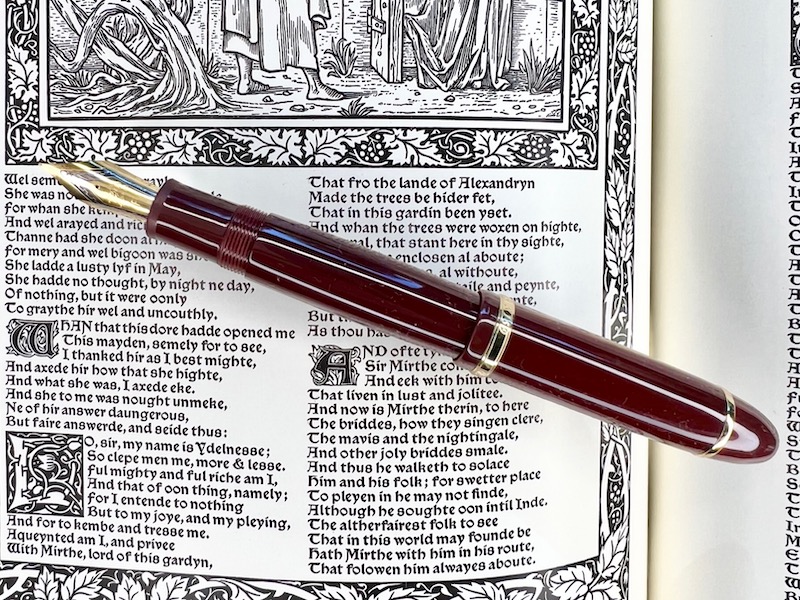 Wel
She was
for whan she
And wel arayed and
Thanne had she doon
for mery and wel bigoon was
She ladde a lusty lyf in May,
She hadde no thought, by night ne day,
Of nothing, but it were oonly
To graythe hir wel and uncouthly.
WHAN that this dore hadde opened me
This mayden, semely for to see,
I thanked hir as I best mighte,
And axede hir how that she highte,
And what she was, I axede eke.
And she to me was nought unmeke,
Ne of hir answer daungerous,
But faire answerde, and seide thus:
LO, sir, my name is Ydelnesse;
So clepe men me, more & lesse.
ful mighty and ful riche am I,
And that of oon thing, namely;
for I entende to nothing
But to my joye, and my pleying,
And for to kembe and tresse me.
Aqueynted am I, and privee
With Mirthe, lord of this gardyn,
That fro the lande of Alexandryn
Made the trees be hider fet,
That in this gardin been yset.
And whan the trees were woxen on highte,
that stant here in thy sighte,
enclosen al aboute;
al withoute,
and peynte,
As thou
AND ofte
Sir Mirthe
And eek with him
That liven in lust and jolitee.
And now is Mirthe therin, to here
The briddes, how they singen clere,
The mavis and the nightingale,
And other joly briddes smale.
And thus he walketh to solace
Him and his folk; for swetter place
To pleyen in he may not finde,
Although he soughte oon intil Inde.
The altherfairest folk to see
That in this world may founde be
Hath Mirthe with him in his route,
That folowen him alwayes aboute.